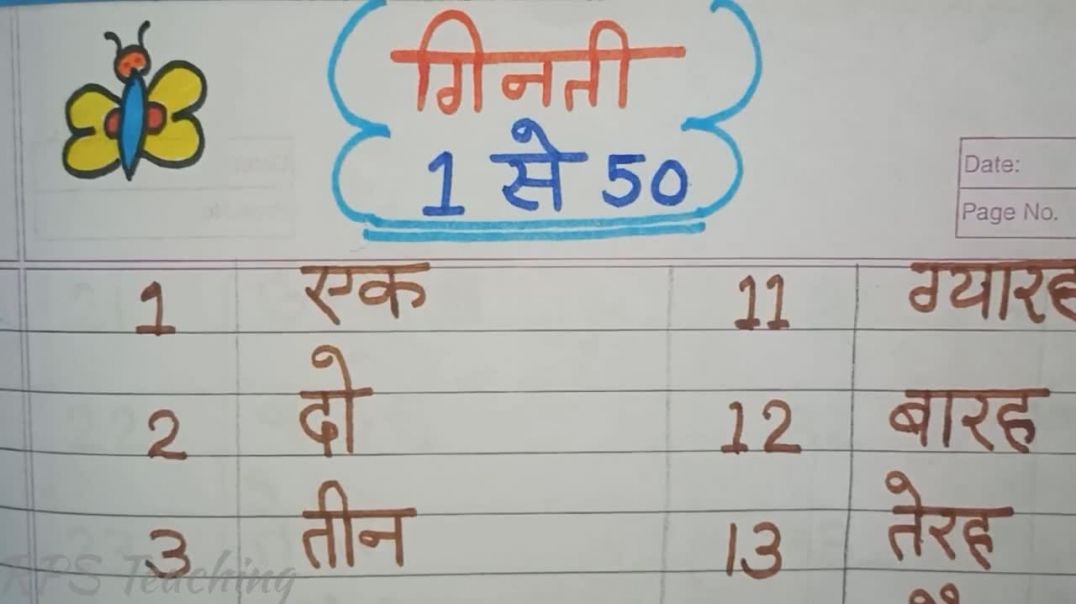 गिनती
1 से 50
Date:
Page No.
1 एक 11 ग्यारह
2 दो 12 बारह
3 तीन 13 तेरह
RPS Teaching